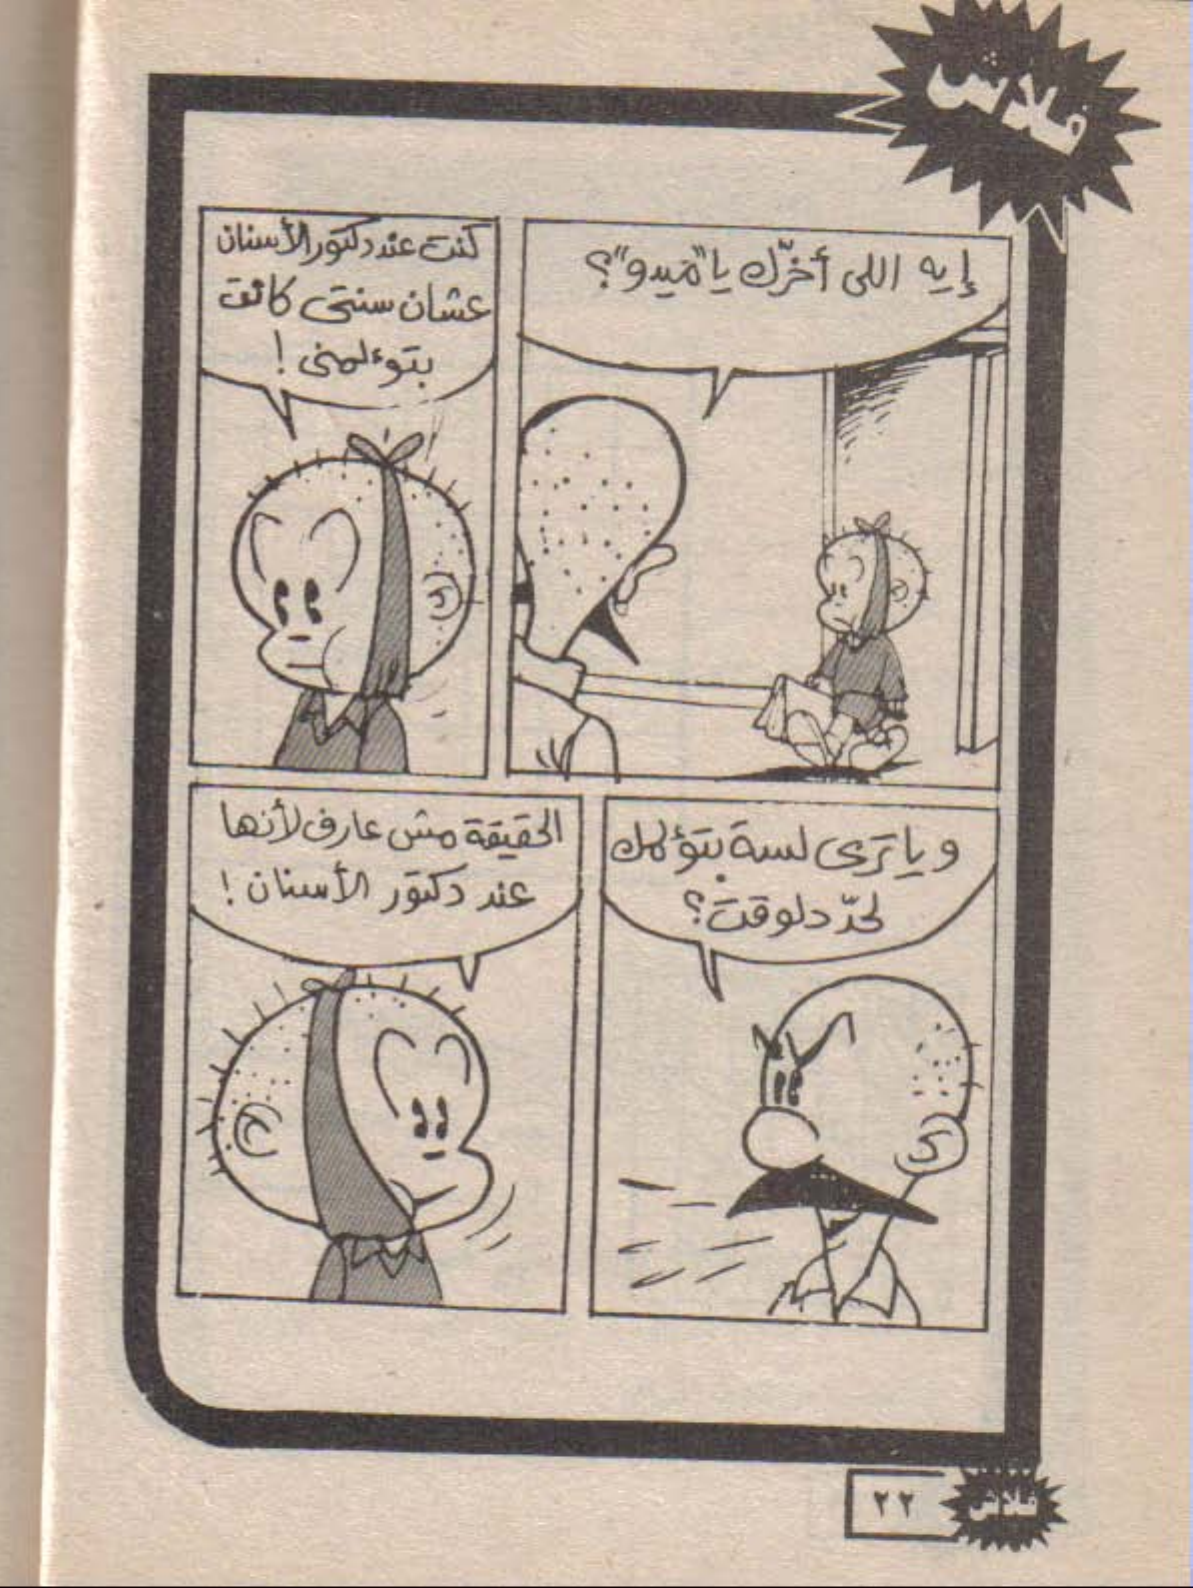 فلاش
إيه اللى أخرّك يا "ميدو"؟
كنت عند دكتور الأسنان
عشان سنتى كانت
بتوءلمنى!
ويا ترى لسة بتؤلمك
لحدّ دلوقت؟
الحقيقة مش عارف لأنها
عند دكتور الأسنان!
٢٢
فلاش